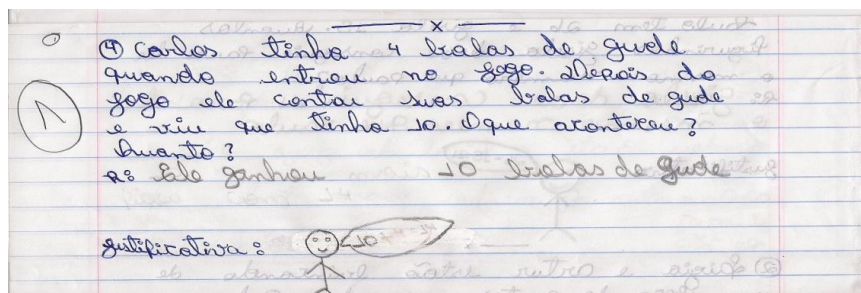 x
④ Carlos tinha 4 bolas de gude
quando entrou no jogo. Depois do
jogo ele contou suas bolas de gude
e viu que tinha 10. O que aconteceu?
Quanto?
R: Ele ganhou 10 bolas de gude
justificativa:
10